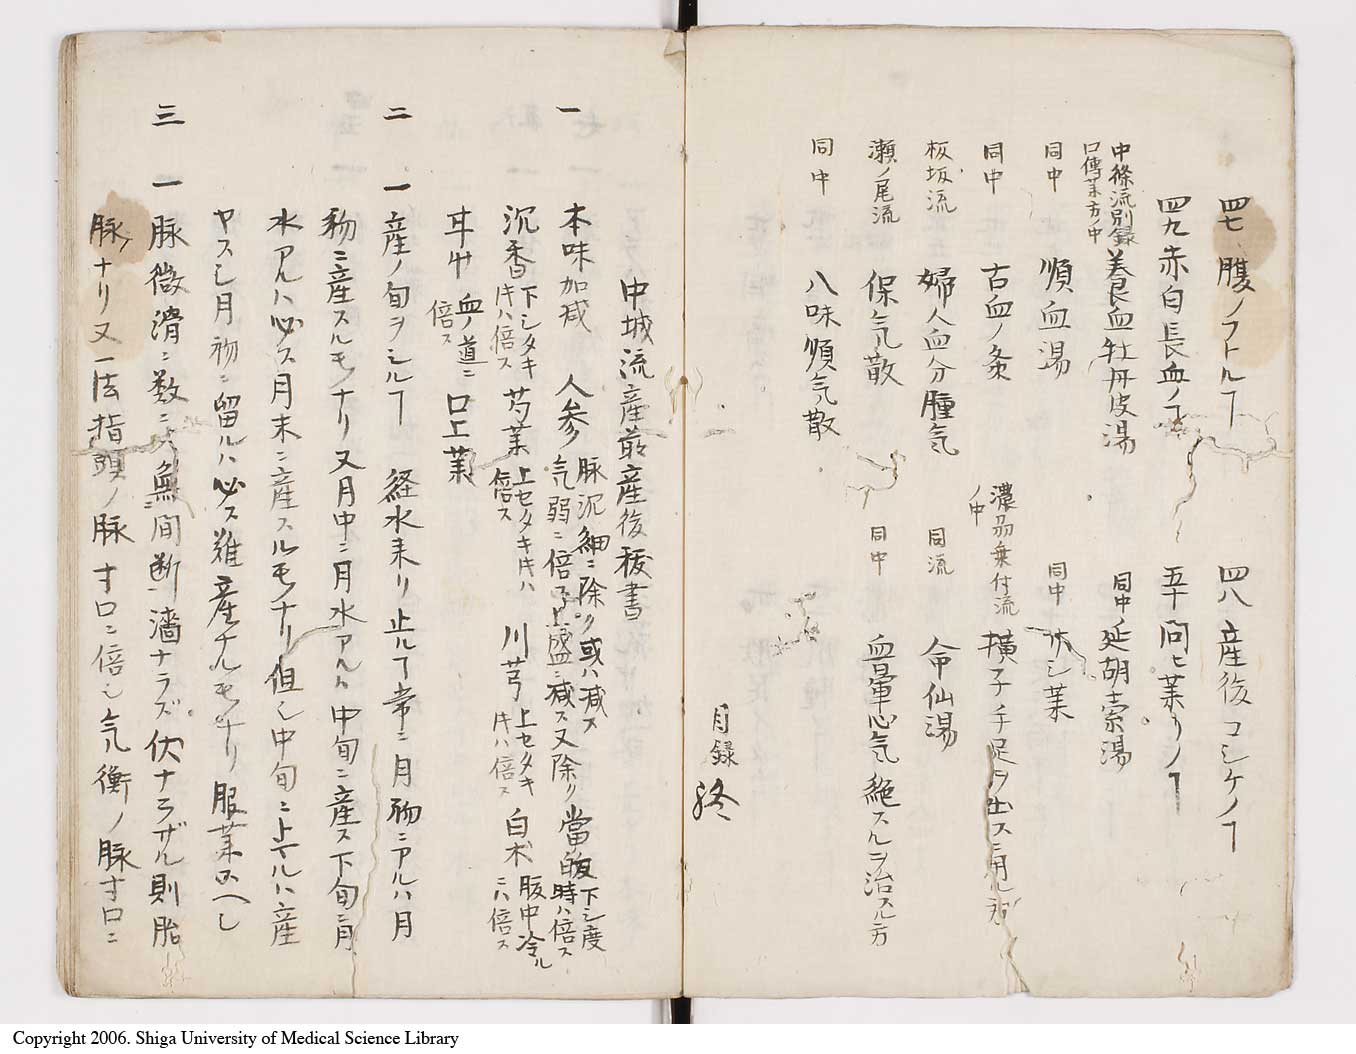 四七 腹ノフトルヿ 四八 産後コシケノヿ
四九 赤白長血ノヿ 五十 問七薬リノヿ
中條流別録口傳薬方ノ中 養良血牡丹皮湯 同中ノ延胡索湯
同中 順血湯 同中 休シ薬
同中 古血ノ条 濃州乗付流ノ中 横子手足ヲ出スニ用ル
板坂流 婦人血分腫気 同流 命仙湯
瀬ノ尾流 保気散 同中 血暈心気絶スルヲ治スル方
同中 八味順気散
目録終
中城流産前産後秘書
一 本味加减 人参 脉沉細ニ除ク或ハ减ス 気弱ニ倍ス上盛ニ减ス又除ク 當皈 下シ度時ハ倍ス
沉香 下シタキキハ倍ス 芍薬 上セタキキハ倍ス 川芎 上セタキキハ倍ス 白朮 腹中冷ルニハ倍ス
血ノ道ニ倍ス 口上薬
二 一産ノ旬ヲシルヿ 経水来リ止ルヿ常ニ月初ニアルハ月
初ニ産スルモノナリ又月中ニ月水アルハ中旬ニ産ス下旬ニ月
水アルハ必ス月末ニ産スルモノナリ但シ中旬ニ上ルハ産
ヤスシ月初ニ留ルハ必ス難産ナルモノナリ服薬スヘシ
三 一脉微滑ニ数ニ〆無間断濇ナラズ伏ナラザル則胎
脉ナリ又一法指頭ノ脉寸口ニ倍シ気衝ノ脉寸口ニ
Copyright 2006. Shiga University of Medical Science Library